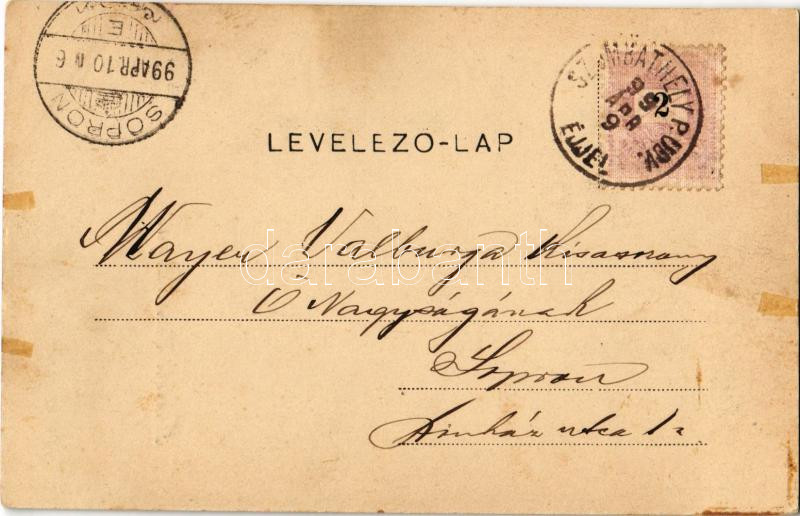 SOPRON
99 APR. 10 6
E
SZOMBATHELY P. UDV.
99
APR
9
ÉJJEL
2
LEVELEZŐ-LAP
Mayer Valburga Kisasszony
Ő Nagyságának
Sopron
Szinház utca 12
darabanth